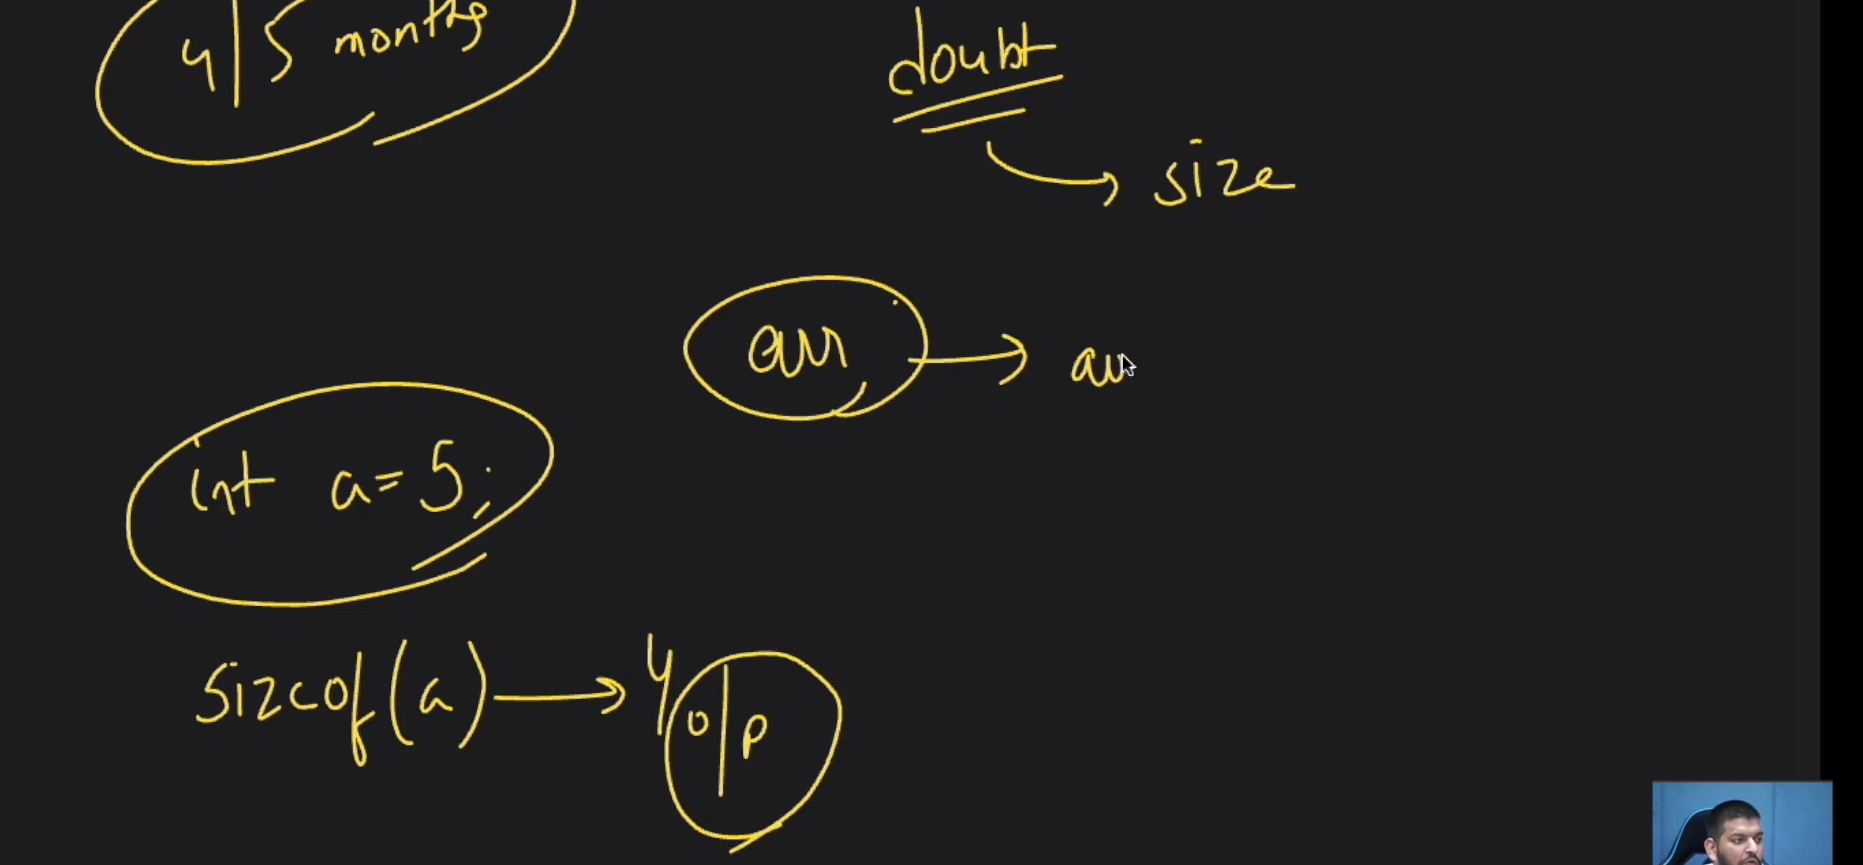 4/5 months
doubt
→ size
arr → ar
int a=5;
sizeof(a) → 4
o/p